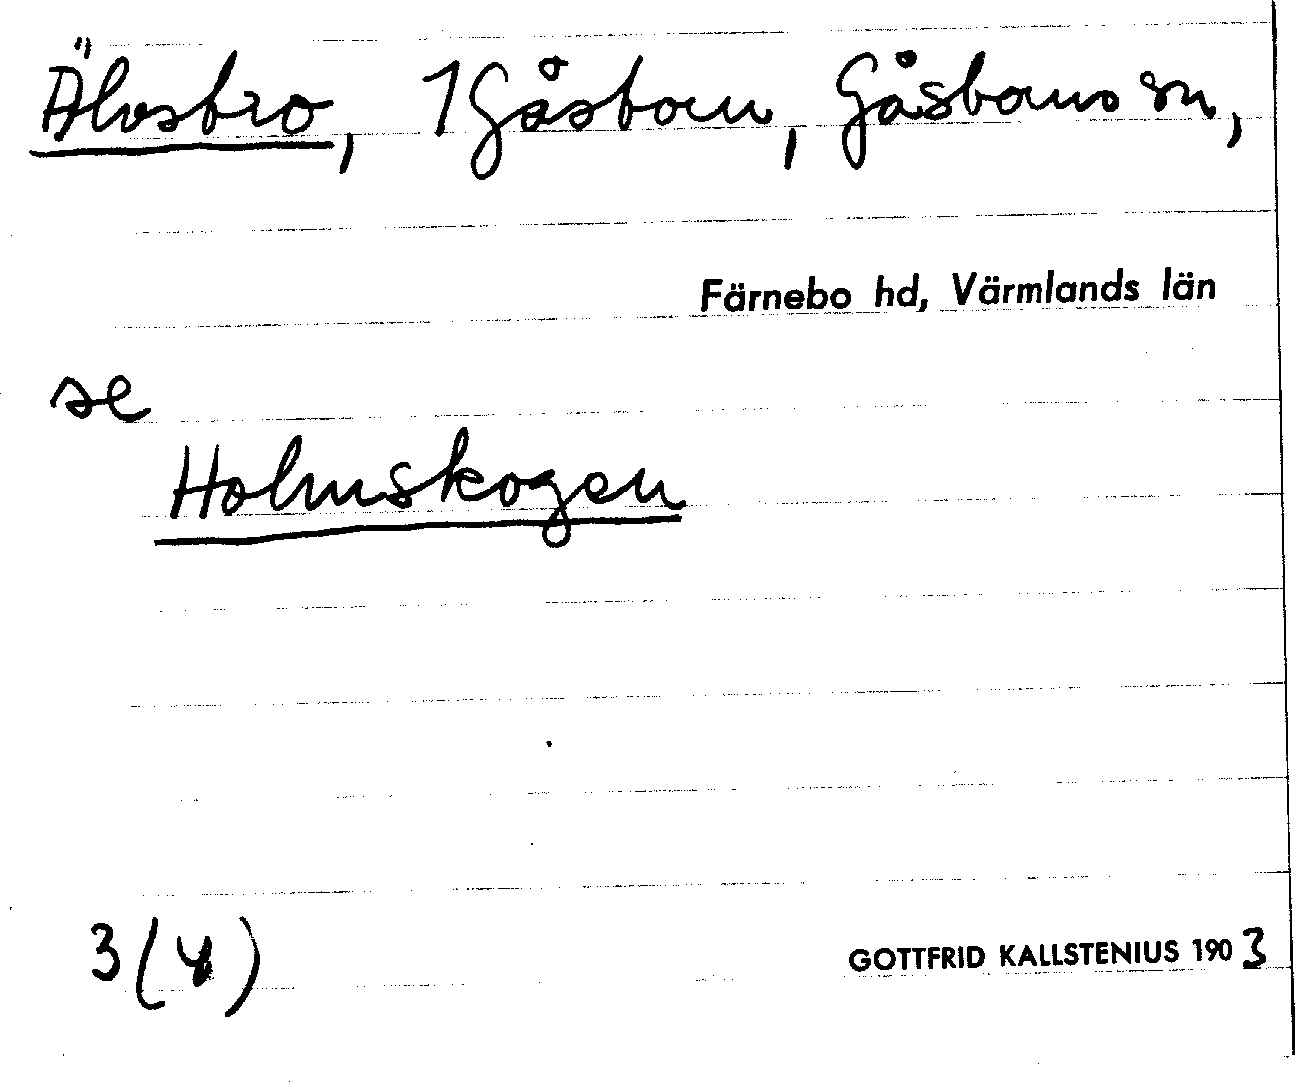 Älvsbro, 1 Gåsborn, Gåsborns sn,
Färnebo hd, Värmlands län
se
Holmskogen
3 (4)
GOTTFRID KALLSTENIUS 1903